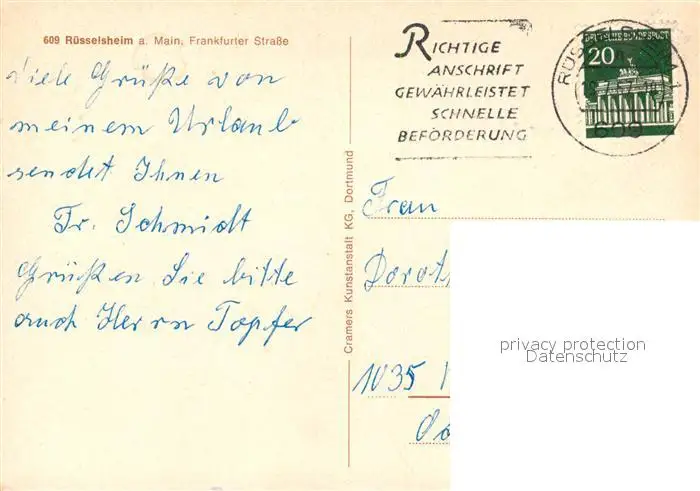 609 Rüsselsheim a. Main, Frankfurter Straße
Viele Grüße von
meinem Urlaub
sendet Ihnen
Fr. Schmidt
Grüßen Sie bitte
auch Herrn Topfer
Cramers Kunstanstalt KG, Dortmund
RICHTIGE
ANSCHRIFT
GEWÄHRLEISTET
SCHNELLE
BEFÖRDERUNG
DEUTSCHE BUNDESPOST
20
609
Frau
Dorot
1035
privacy protection
Datenschutz